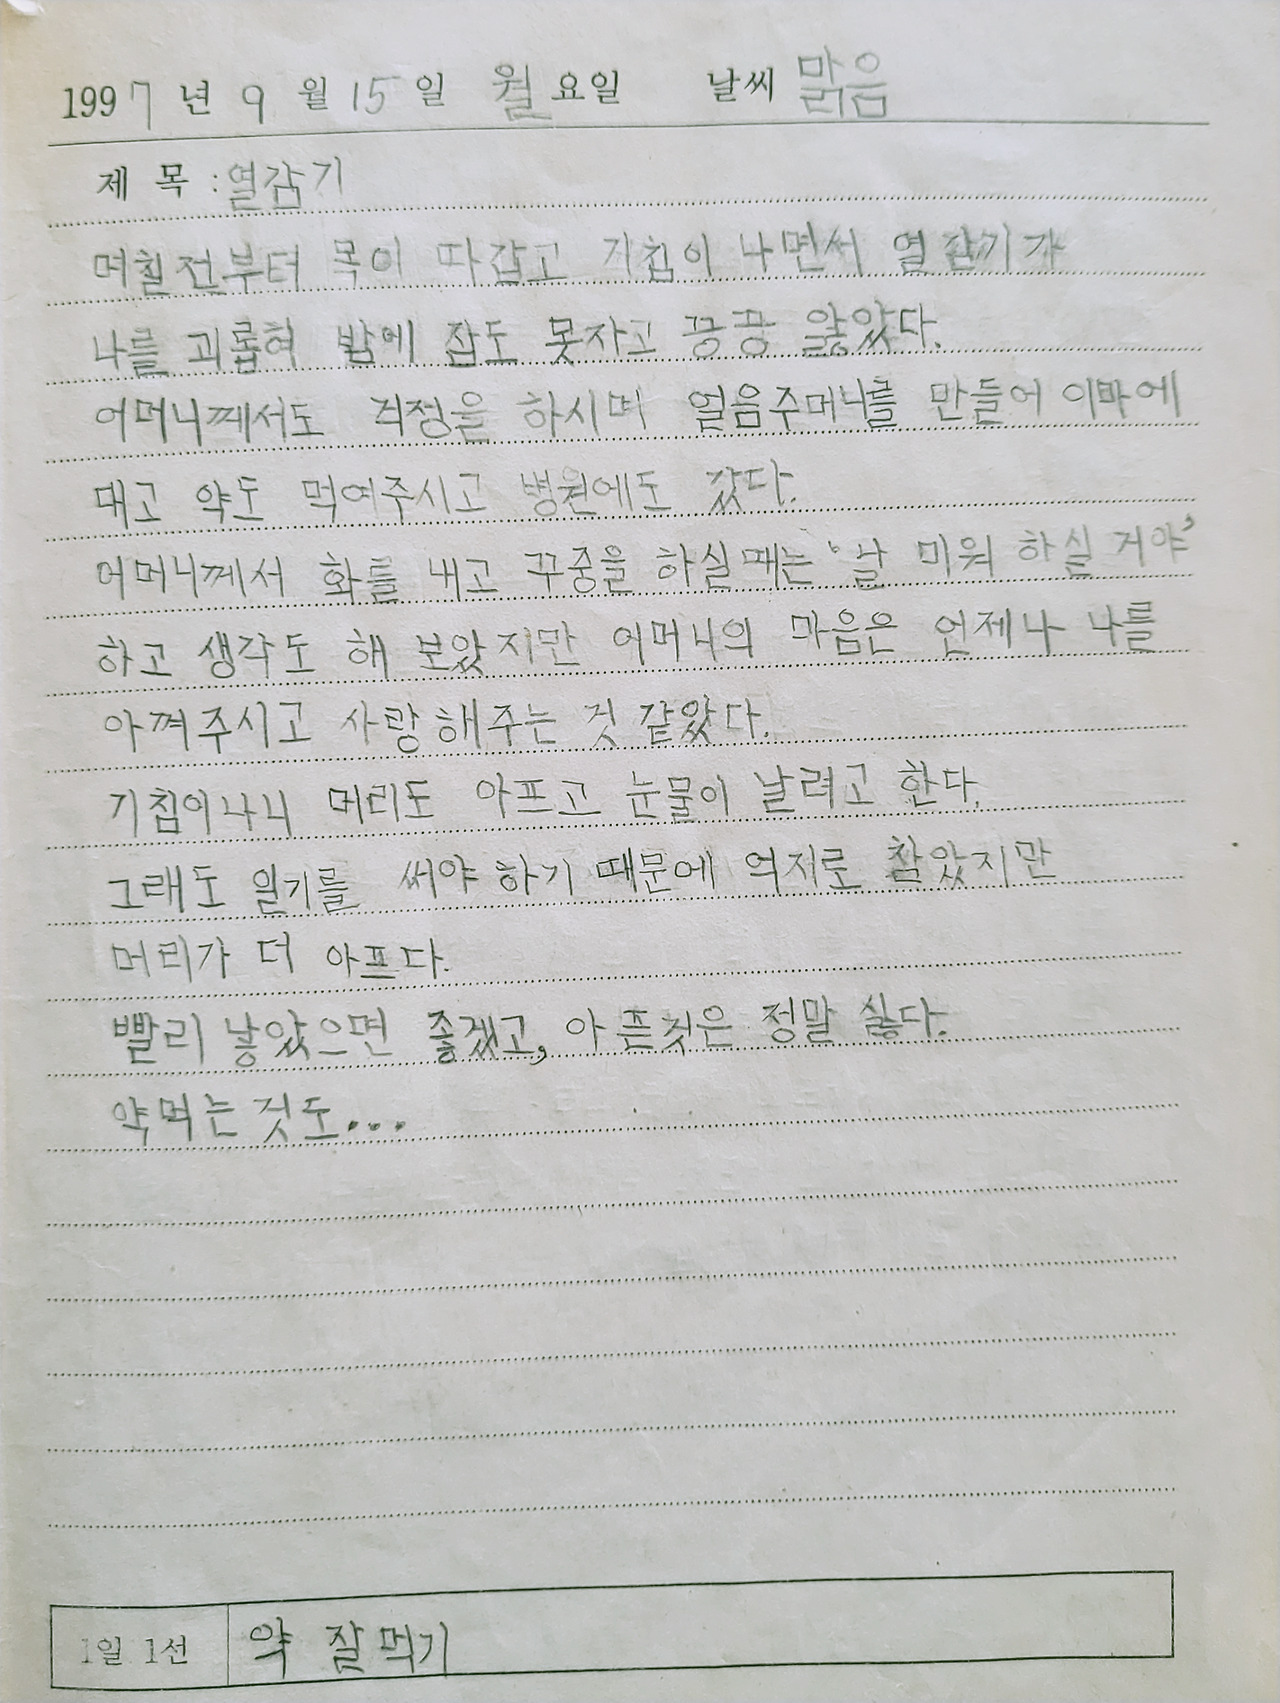 1997년 9월 15일 월요일 날씨 맑음
제 목 : 열감기
며칠전부터 목이 따갑고 기침이 나면서 열감기가
나를 괴롭혀 밤에 잠도 못자고 끙끙 앓았다.
어머니께서도 걱정을 하시며 얼음주머니를 만들어 이마에
대고 약도 먹여주시고 병원에도 갔다.
어머니께서 화를 내고 꾸중을 하실때는 '날 미워 하실 거야'
하고 생각도 해 보았지만 어머니의 마음은 언제나 나를
아껴주시고 사랑해주는 것 같았다.
기침이나니 머리도 아프고 눈물이 날려고 한다.
그래도 일기를 써야 하기 때문에 억지로 참았지만
머리가 더 아프다.
빨리 낳았으면 좋겠고, 아픈것은 정말 싫다.
약먹는 것도...
1일 1선 약 잘먹기